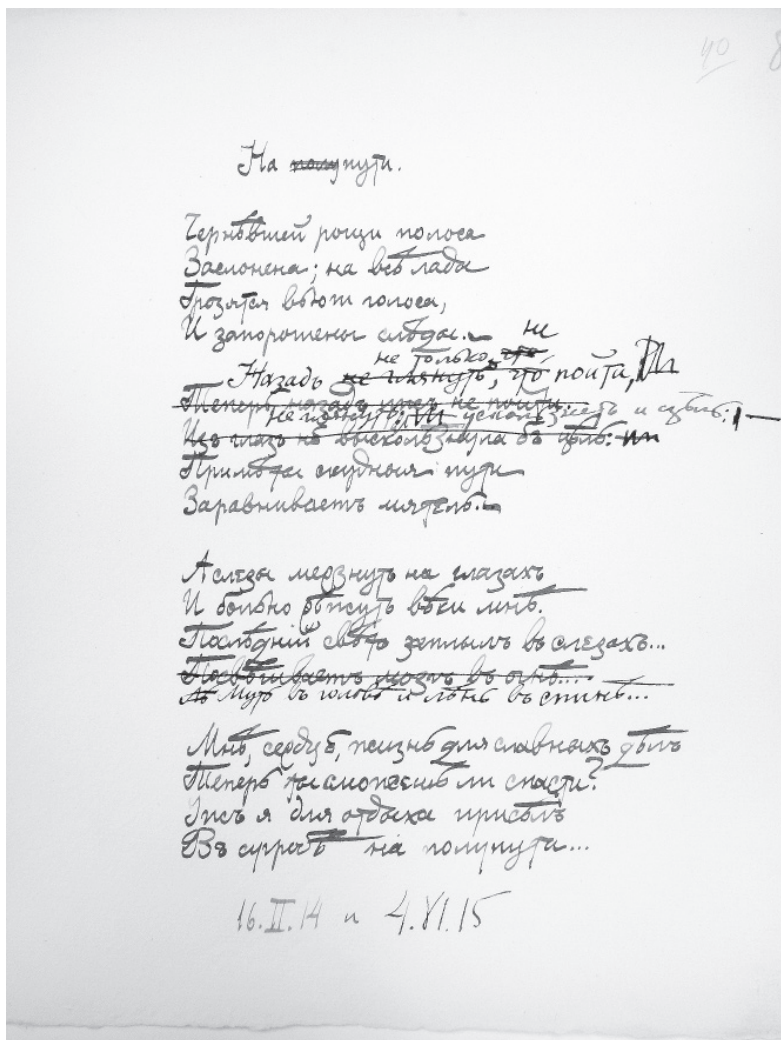 40
На полупути.
Чернѣвшей рощи полоса
Заслонена; на всѣ лады
Грозятся вьюги голоса,
И запорошены слѣды.
не
не только, что,
Назадъ не глянуть, что пойти,
Теперь назадъ ужъ не пойти.
не глянуть: ускользнетъ и цѣль:
Изъ глазъ не выскользнула бъ цѣль:
Примѣты скудныя пути
Заравниваетъ мятель.
А слезы мерзнутъ на глазахъ
И больно рѣжутъ вѣки мнѣ.
Послѣдній свѣтъ въ слезахъ...
мозгъ въ огнѣ....
Муть въ головѣ и лѣнь въ спинѣ...
Мнѣ, сердце, жизнь для славныхъ дѣлъ
Теперь ты сможешь ли спасти?
Ужъ я для отдыха присѣлъ
Въ сугробъ на полупути...
16.II.14 и 4.XI.15